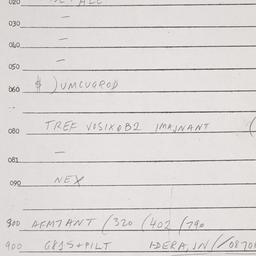 020
030 —
040 —
050 —
060 $ ) UMCUGPOD
080 TREF VOSIXOB2 IMAJNANT (
081 —
090 NEX
900 AFM7ANT (320 (402 (790
900 G81S+PILT IDERA, IN (/08701